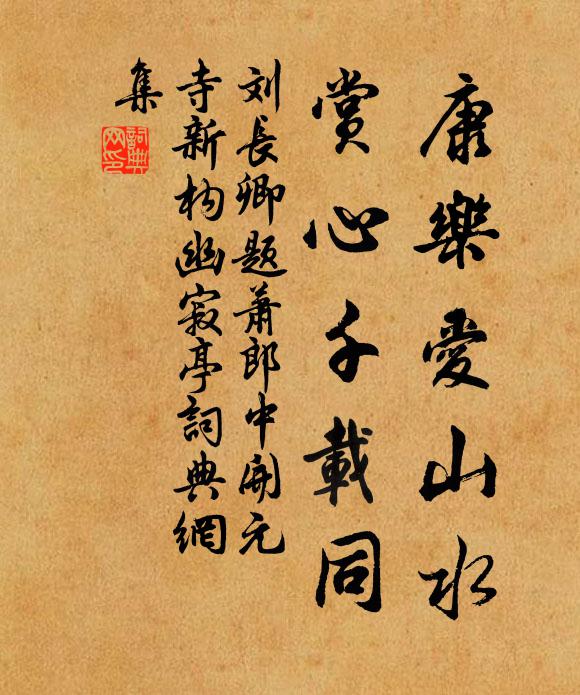 康樂愛山水
賞心千載同
刘長卿題蕭郎中開元
寺新构幽寂亭詞典網
集
詞典
网印